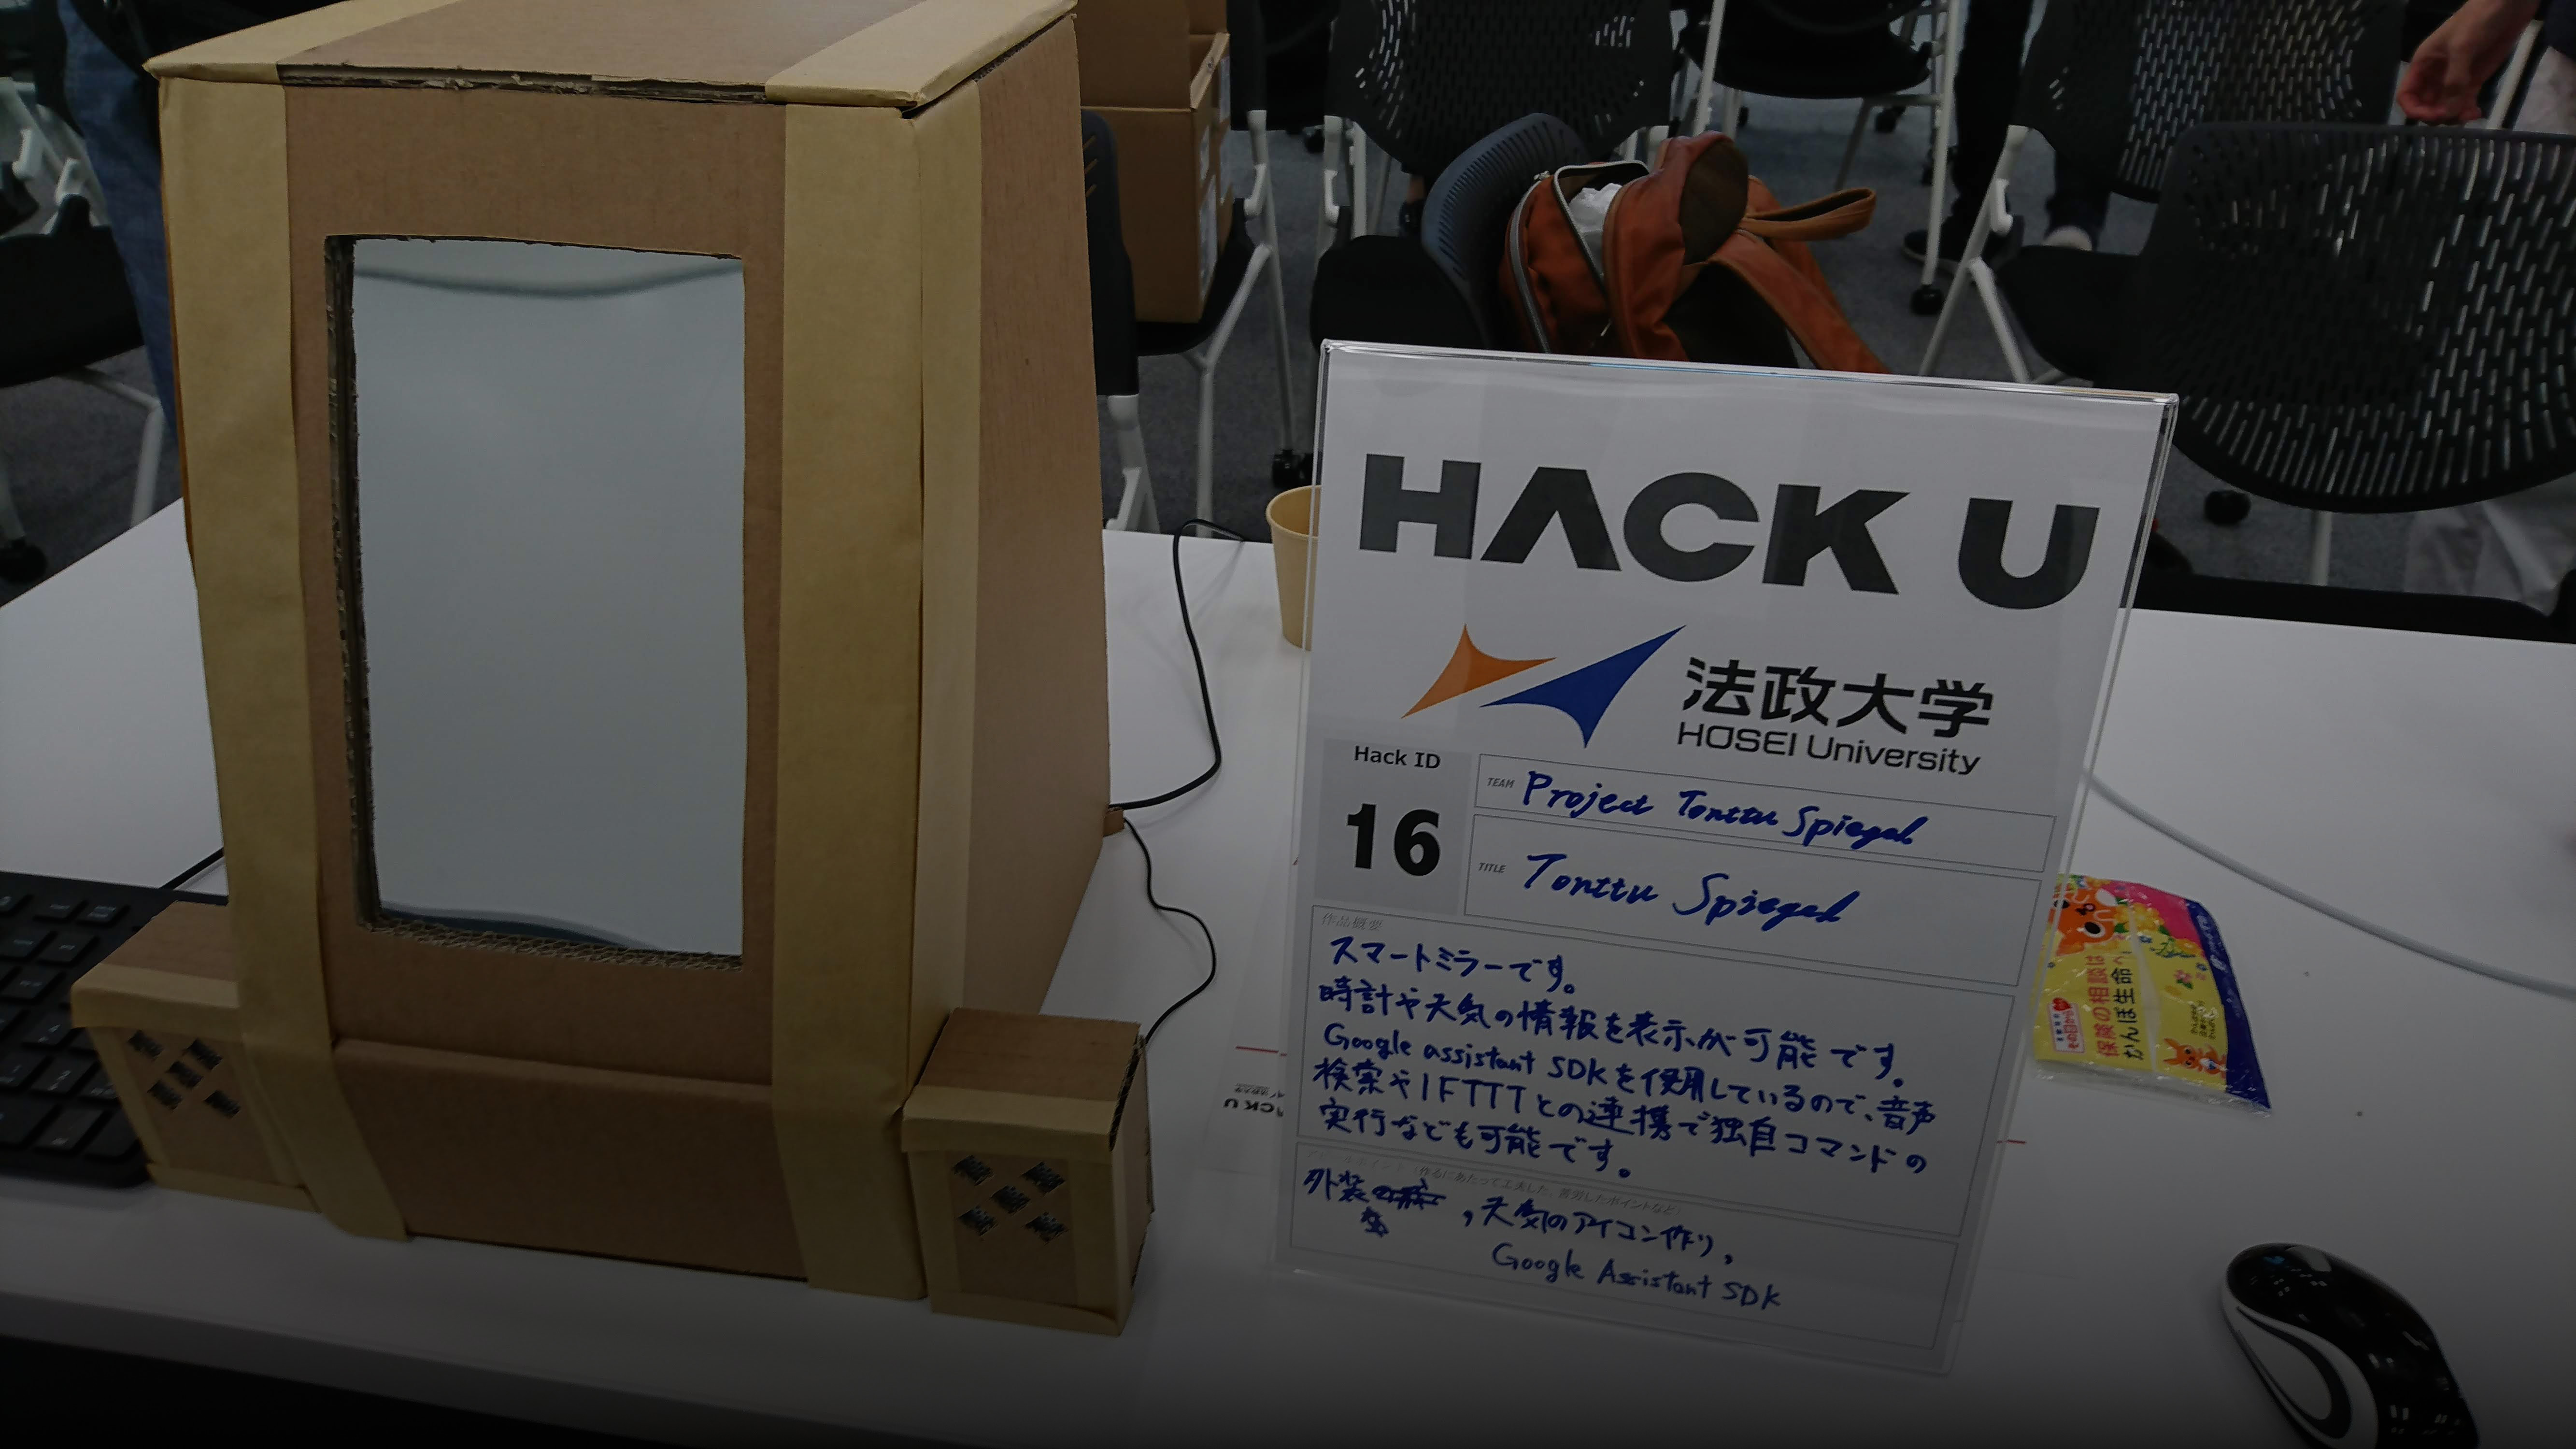 HACK U
法政大学
HOSEI University
Hack ID
16
TEAM
Project Tonttu Spiegel
TITLE
Tonttu Spiegel
作品概要
スマートミラーです。
時計や天気の情報を表示が可能です。
Google assistant SDKを使用しているので、音声
検索やIFTTTとの連携で独自コマンドの
実行なども可能です。
(作るにあたって工夫した、苦労したポイントなど)
外装
, 天気のアイコン作り,
Google Assistant SDK
保険の相談は
かんぽ生命へ
HACK U